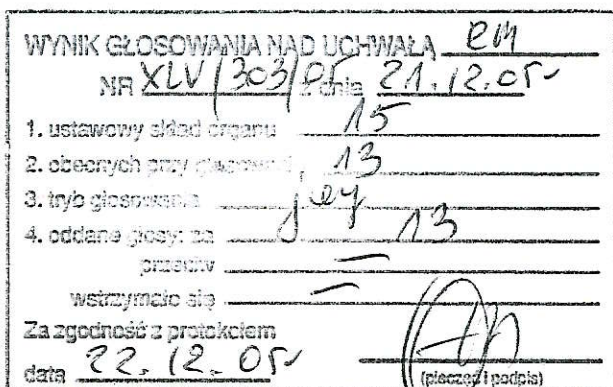 WYNIK GŁOSOWANIA NAD UCHWAŁĄ
NR XLV/303/05 z dnia 21.12.05r
1. ustawowy skład organu 15
2. obecnych przy głosowaniu 13
3. tryb głosowania
4. oddane głosy: za 13
przeciw —
wstrzymało się —
Za zgodność z protokołem
data 22.12.05r
(pieczęć i podpis)